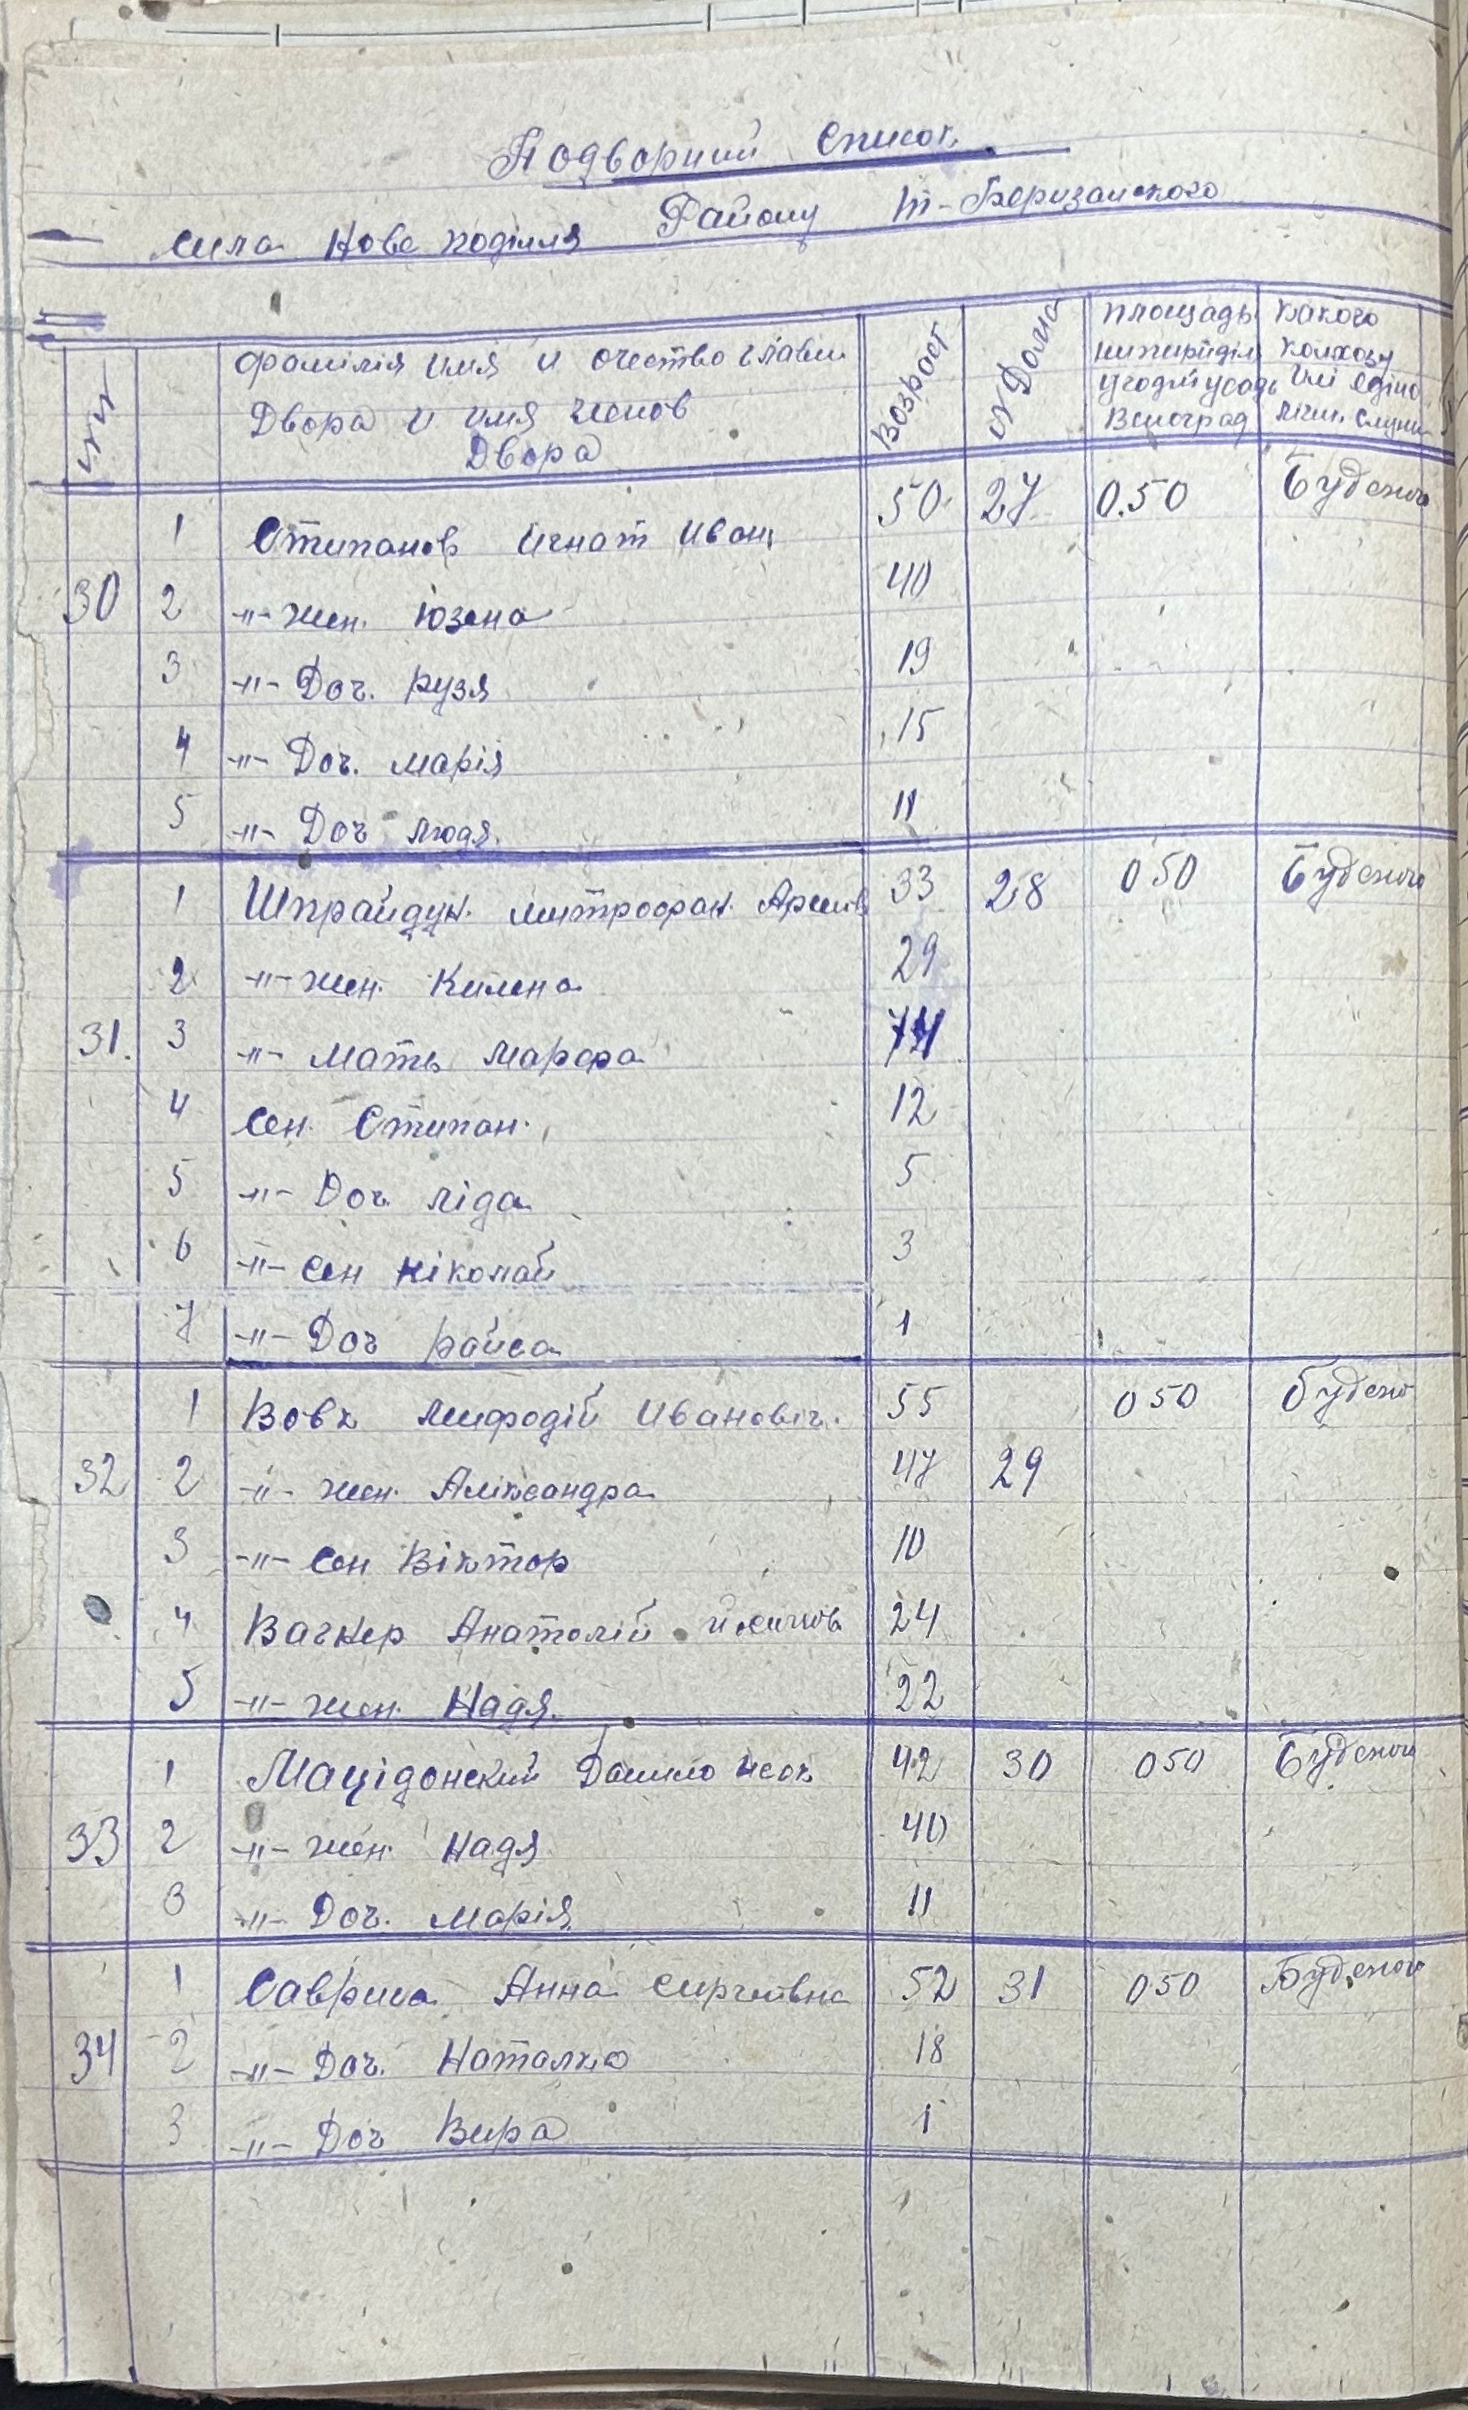 Подворний список
села Нове поділля Району Т-Березанского
NN фамілія имя и очество главы Двора и имя членов Двора Возраст N Дома площадь какого колхозу
1 Стипанов Игнат Иван 50 27 0.50 Буденого
30 2 -"- жен. Юзена 40
3 -"- Доч. рузя 19
4 -"- Доч. марія 15
5 -"- Доч людя. 11
1 Шпрайдун. митрофан. 33 28 0 50 Буденого
2 -"- жен. Килена 29
31. 3 -"- мать марфа
4 сен. Стипан. 12
5 -"- Доч. ліда 5
6 -"- сен ніколай 3
7 -"- Доч раиса 1
1 Вовк мифодій Ивановіч. 55 0 50 будено
32 2 -"- жен. Аліксандра 47 29
3 -"- сен Віктор 10
4 Вагнер Анатолій 24
5 -"- жен. Надя. 22
1 Мацідонский Данило 42 30 0 50 Буденого
33 2 -"- жен. Надя 40
3 -"- Доч. марія 11
1 Анна сиргеівна 52 31 0 50 Буденого
34 2 -"- Доч. Наталка 18
3 -"- Доч Вера 1